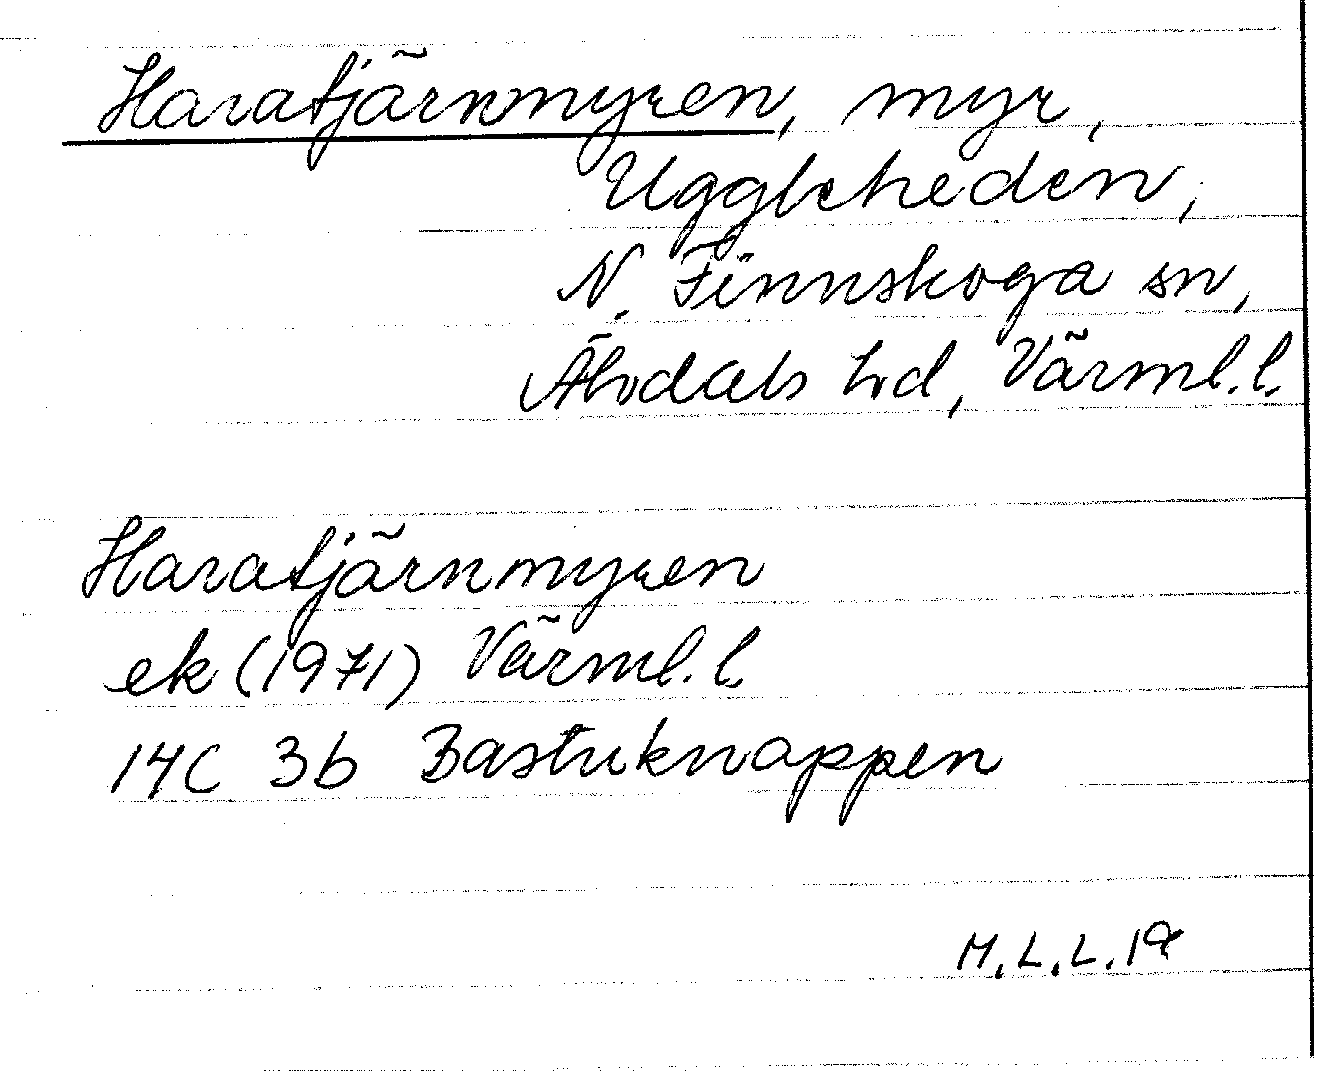 Haratjärnmyren, myr,
Uggleheden,
N. Finnskoga sn,
Älvdals hd, Värml. l.
Haratjärnmyren
ek (1971) Värml. l.
14C 3b Bastuknappen
M.L.L.